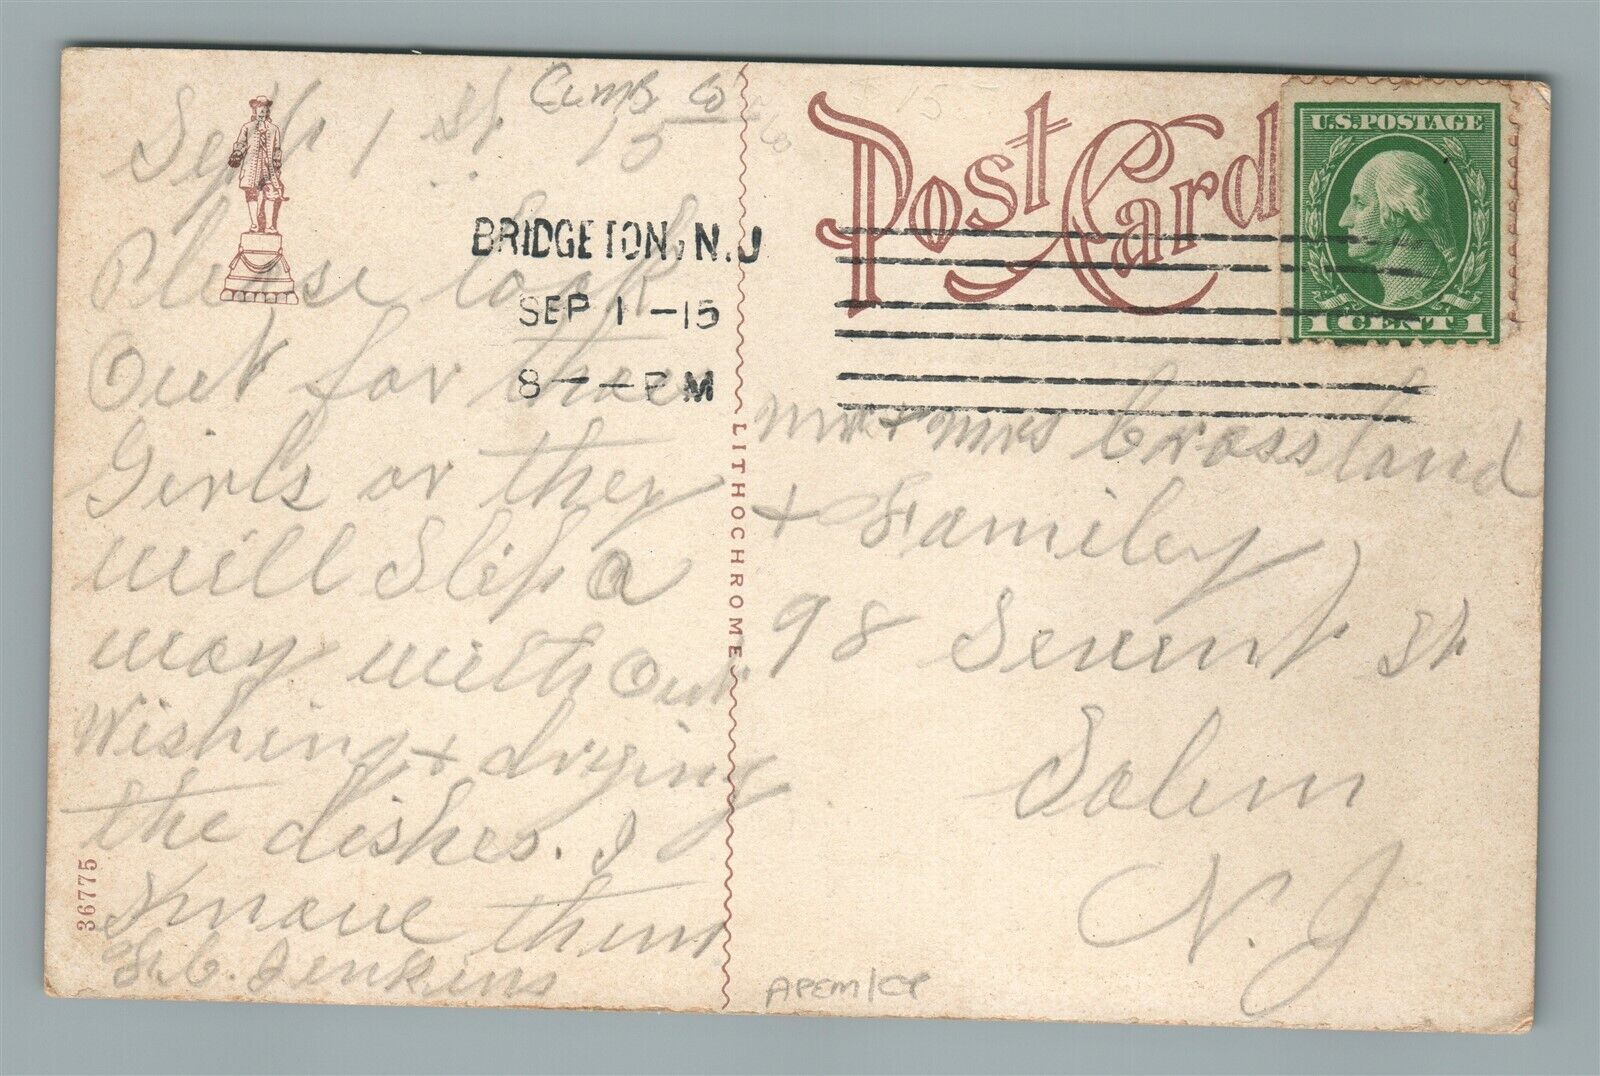 Cumb Co
Sept 1 st 15
Please look
Out for those
Girls or they
will Slip a
way with Out
Wishing + drying
the dishes. I
know them
C. Jenkins
BRIDGETON, N.J.
SEP 1 -15
8 - PM
36775
LITHOCHROME
Post Card
U.S. POSTAGE
1 CENT 1
Mr + Mrs Crossland
+ Family
98 Sevent St
Salem
N. J
APEM/CP